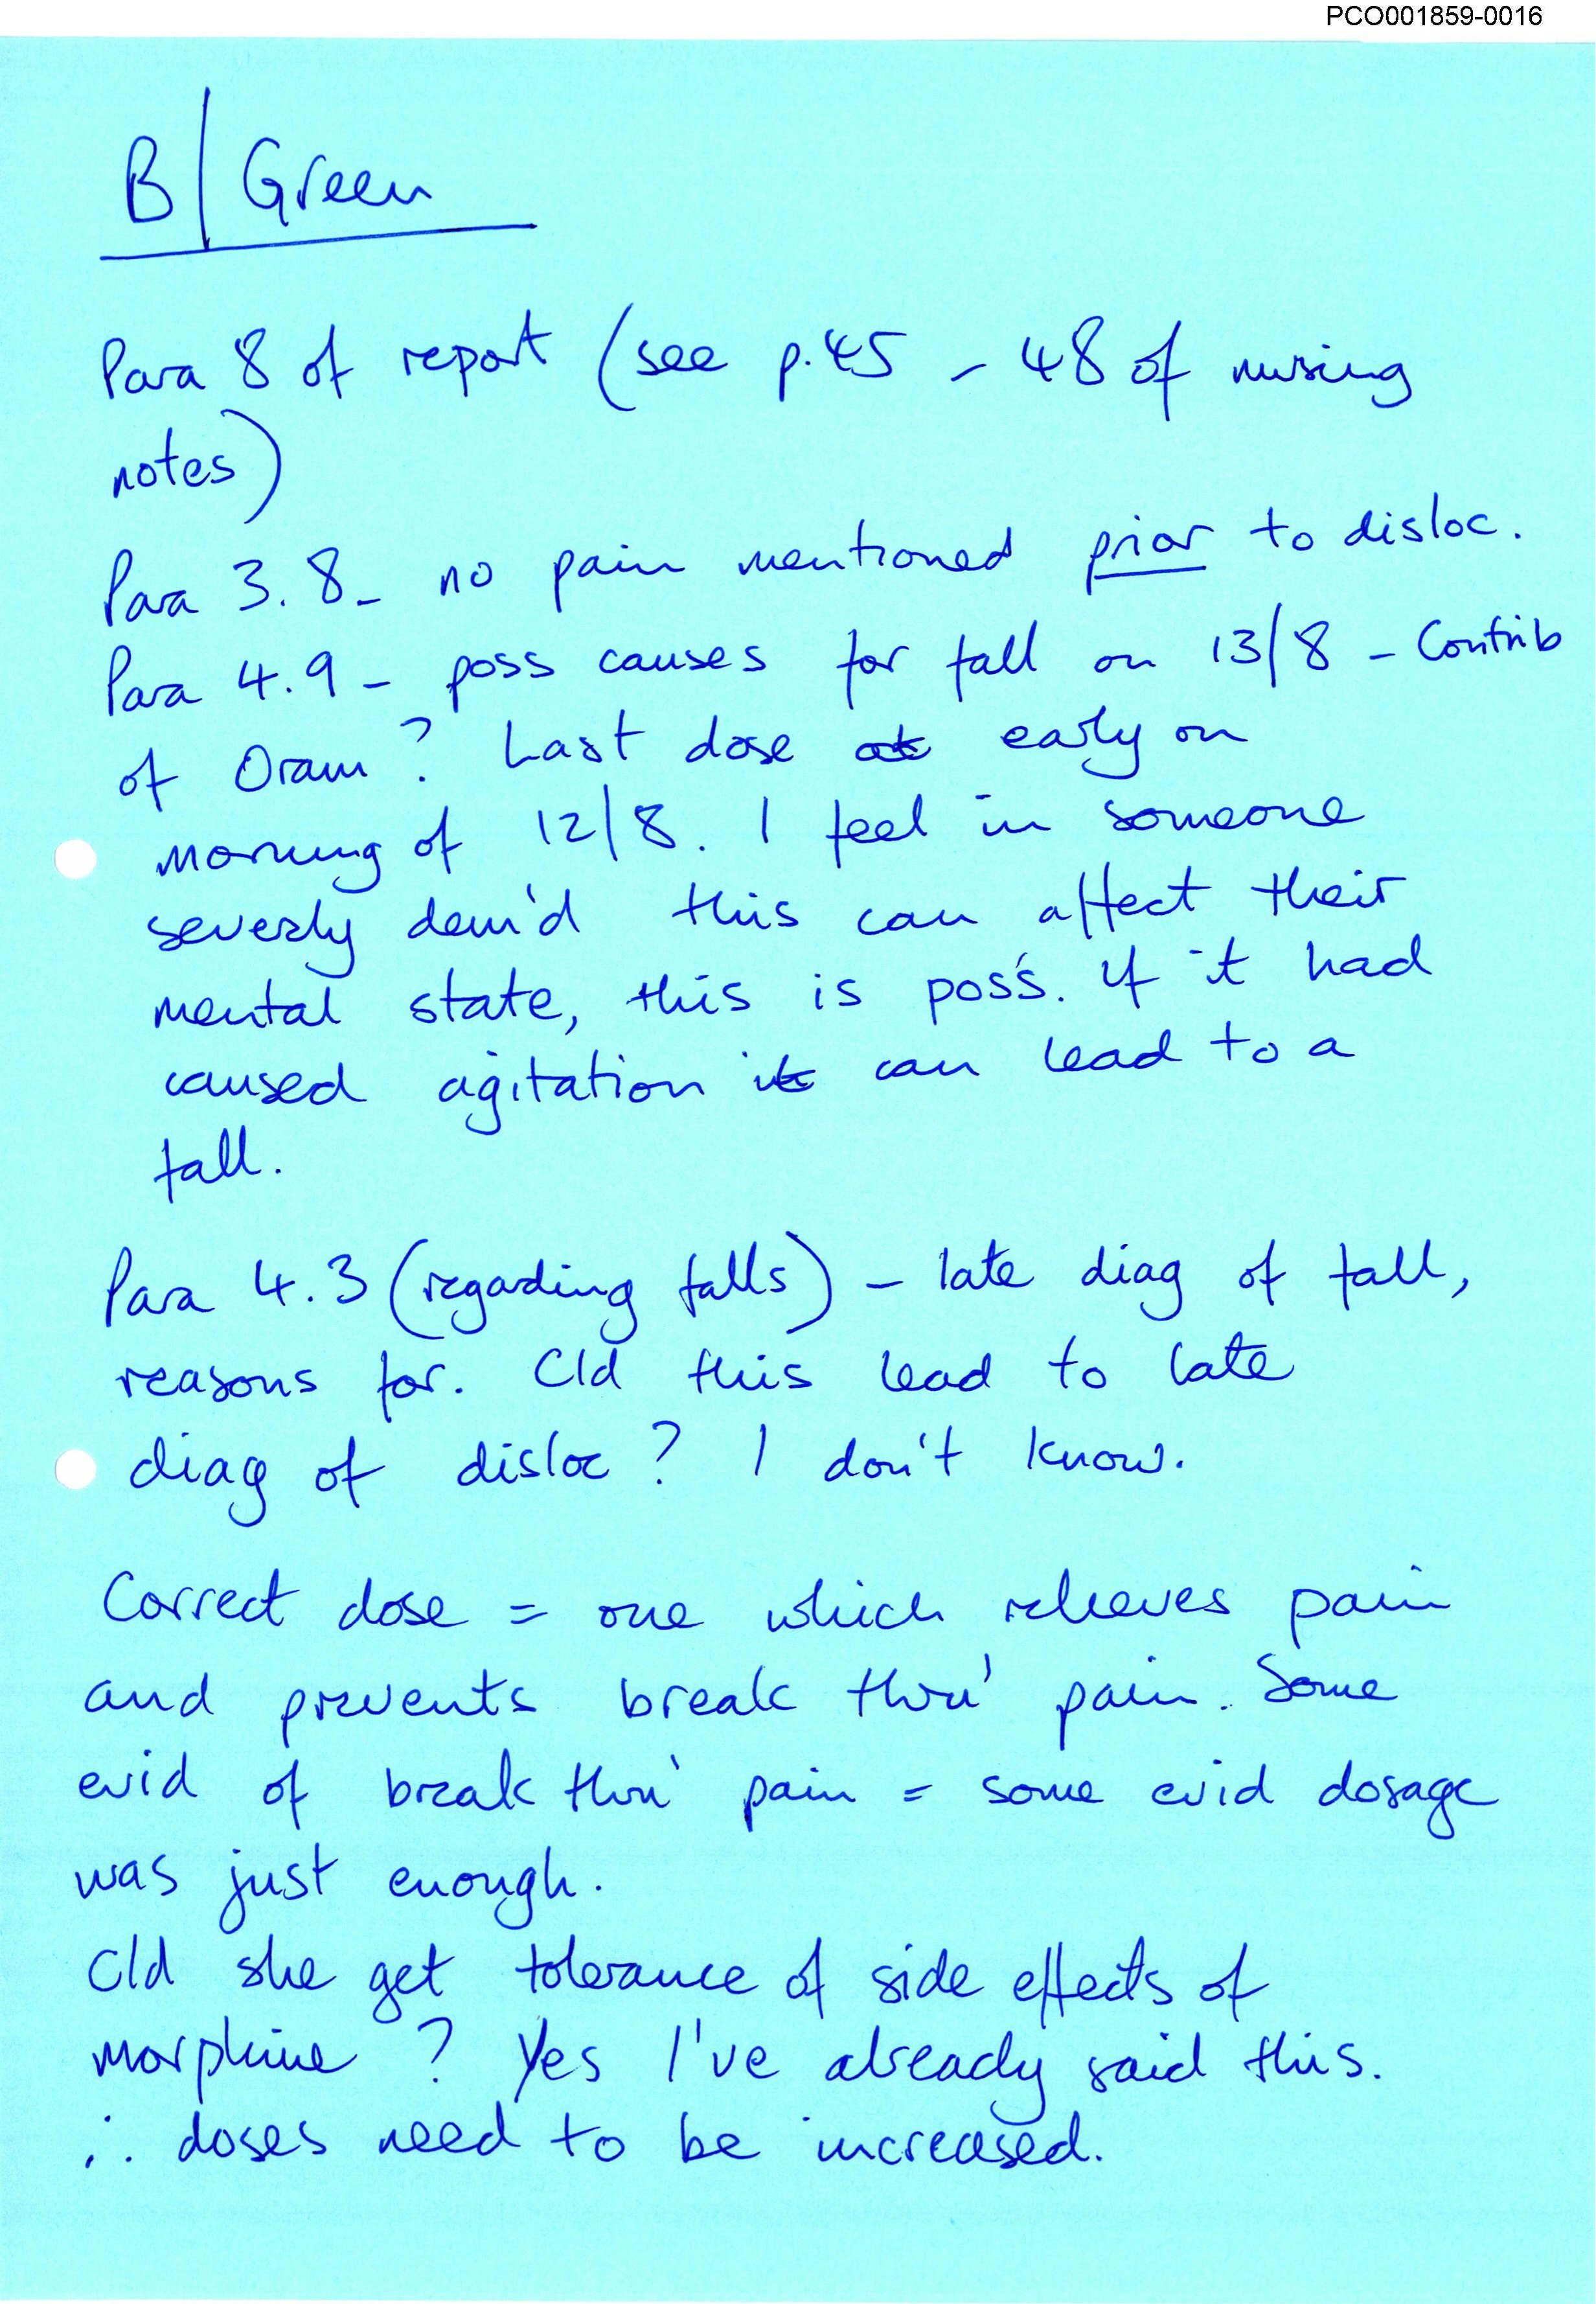 PCO001859-0016
B/Green
Para 8 of report (see p.45 - 48 of nursing
notes)
Para 3.8 - no pain mentioned prior to disloc.
Para 4.9 - poss causes for fall on 13/8 - Contrib
of Oram? Last dose at early on
morning of 12/8. I feel in someone
severly dem'd this can affect their
mental state, this is poss. If it had
caused agitation it can lead to a
fall.
Para 4.3 (regarding falls) - late diag of fall,
reasons for. Cld this lead to late
diag of disloc? I don't know.
Correct dose = one which relieves pain
and prevents break thru' pain. Some
evid of break thru' pain = some evid dosage
was just enough.
Cld she get tolerance of side effects of
morphine? Yes I've already said this.
∴ doses need to be increased.